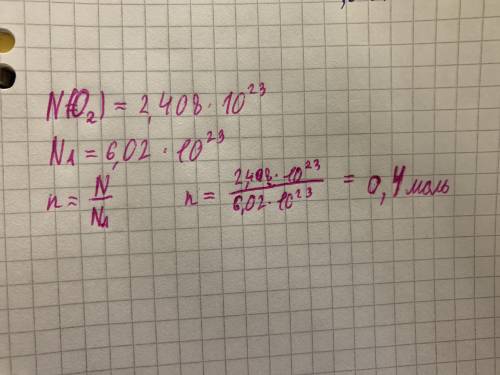 N(O₂) = 2,408 · 10²³
N₁ = 6,02 · 10²³
n = N/N₁ n = 2,408 · 10²³ / 6,02 · 10²³ = 0,4 моль